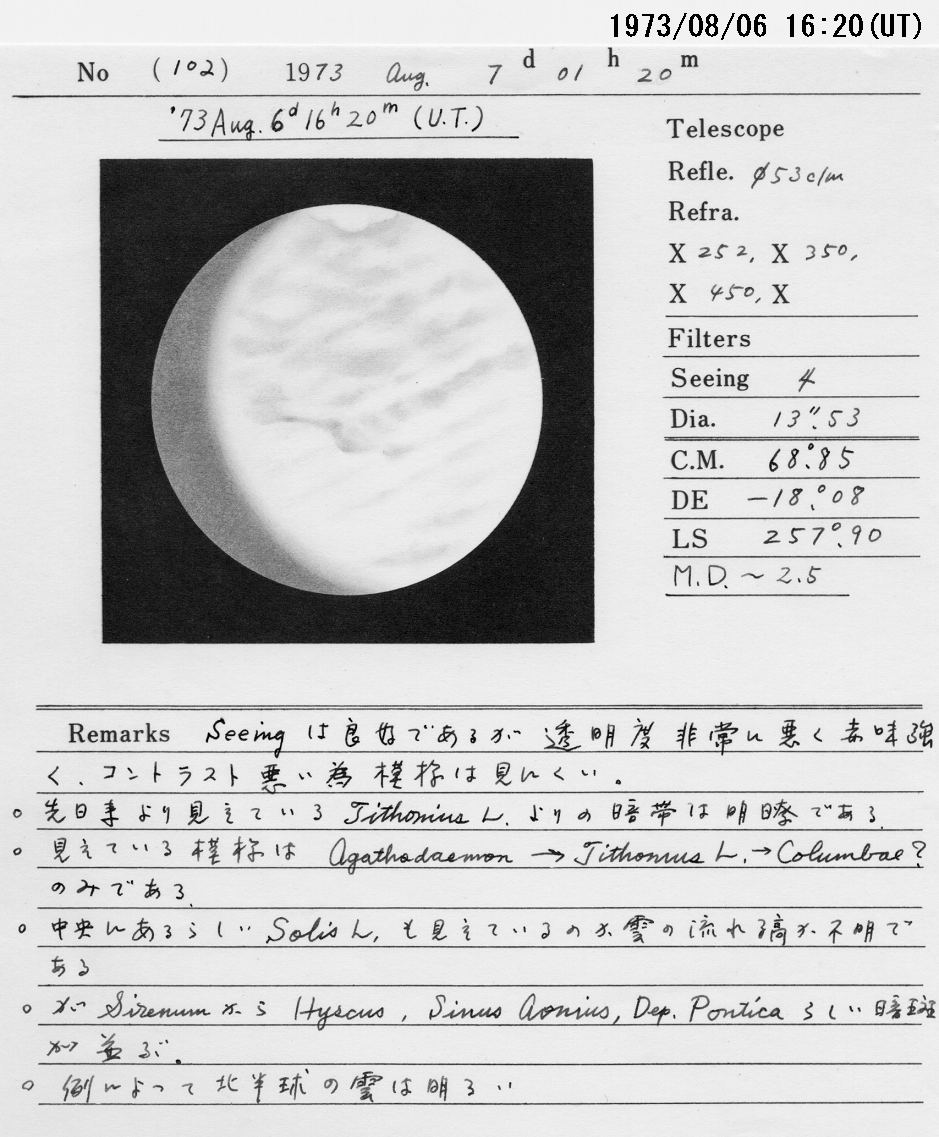 1973/08/06 16:20(UT)
No (102) 1973 Aug. 7 d 01 h 20 m
'73 Aug. 6d 16h 20m (U.T.)
Telescope
Refle. φ53c/m
Refra.
X 252, X 350,
X 450, X
Filters
Seeing 4
Dia. 13″.53
C.M. 68°.85
DE -18.°08
LS 257°.90
M.D. ~ 2.5
Remarks Seeingは良好であるが透明度非常に悪く赤味強
く、コントラスト悪い為模様は見にくい。
○ 先日来より見えている Tithonius L. よりの暗帯は明瞭である.
○ 見えている模様は Agathodaemon → Tithonius L. → Columbae?
のみである.
○ 中央にあるらしい Solis L, も見えているのか雲の流れ模か不明で
ある
○ Sirenum から Hyscus, Sinus Aonius, Dep. Pontica らしい暗斑
が並ぶ.
○ 例によって北半球の雲は明るい